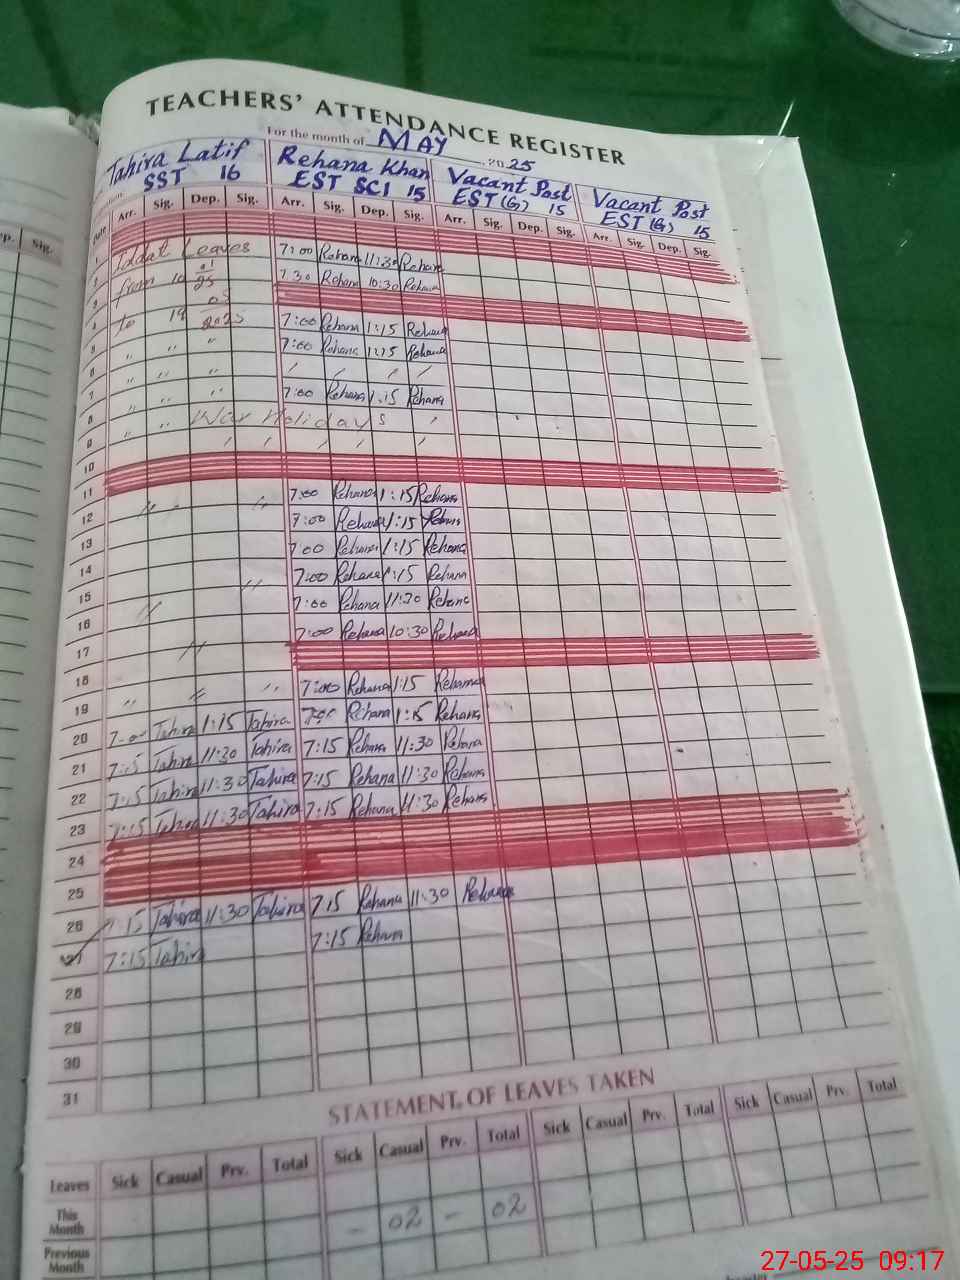 TEACHERS' ATTENDANCE REGISTER
For the month of MAY 2025
Tahira Latif SST 16 Rehana Khan EST SCI 15 Vacant Post EST (G) 15 Vacant Post EST (G) 15
Date Arr. Sig. Dep. Sig. Arr. Sig. Dep. Sig. Arr. Sig. Dep. Sig. Arr. Sig. Dep. Sig.
1
2 Iddat Leaves 7:00 Rehana 11:30 Rehana
3 from 10 01 25 7:30 Rehana 10:30 Rehana
4 05
5 to 19 2025 7:00 Rehana 1:15 Rehana
6 " " " 7:00 Rehana 1:15 Rehana
" " "
7 " " " 7:00 Rehana 1:15 Rehana
8 " " War Holidays
9
10
11
12 7:00 Rehana 1:15 Rehana
13 7:00 Rehana 1:15 Rehana
14 7:00 Rehana 1:15 Rehana
15 7:00 Rehana 1:15 Rehana
16 7:00 Rehana 11:30 Rehana
17 7:00 Rehana 10:30 Rehana
18
19 7:00 Rehana 1:15 Rehana
20 7:00 Tahira 1:15 Tahira Rehana 1:15 Rehana
21 7:15 Tahira 11:30 Tahira 7:15 Rehana 11:30 Rehana
22 7:15 Tahira 11:30 Tahira 7:15 Rehana 11:30 Rehana
23 7:15 Tahira 11:30 Tahira 7:15 Rehana 11:30 Rehana
24
25
26 7:15 Tahira 11:30 Tahira 7:15 Rehana 11:30 Rehana
27 7:15 Tahira 7:15 Rehana
28
29
30
31
STATEMENT OF LEAVES TAKEN
Leaves Sick Casual Prv. Total Sick Casual Prv. Total Sick Casual Prv. Total Sick Casual Prv. Total
This Month - 02 - 02
Previous Month
ep. Sig.
27-05-25 09:17